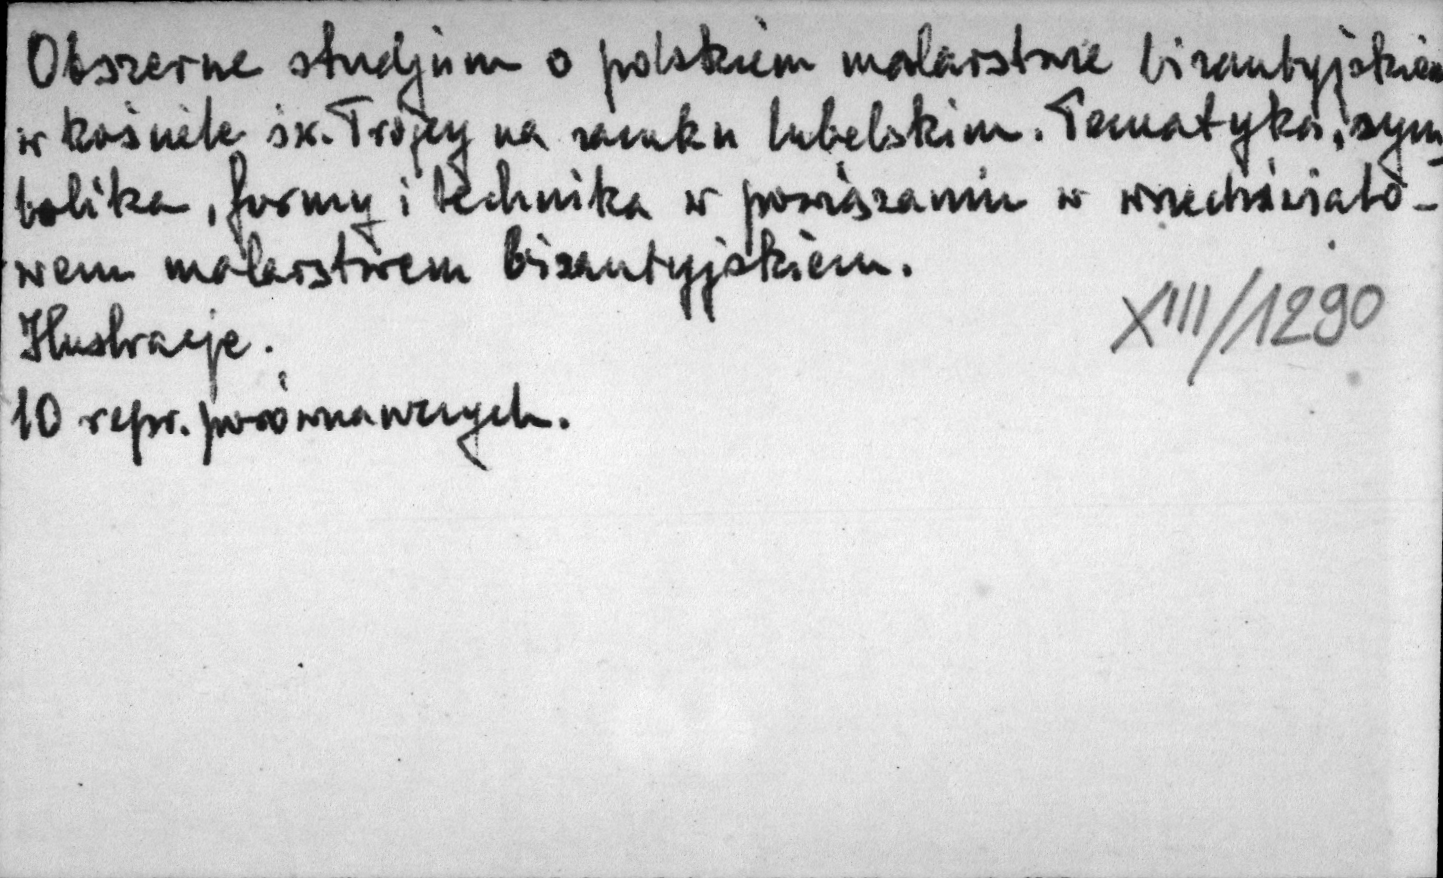 Obszerne studjum o polskiem malarstwie bizantyjskiem
w kościele św. Trójcy na zamku lubelskim. Tematyka, sym
bolika, formy i technika w powiązaniu w wszechświato-
wem malarstwem bizantyjskiem.
XIII/1290
Ilustracje.
10 repr. porównawczych.